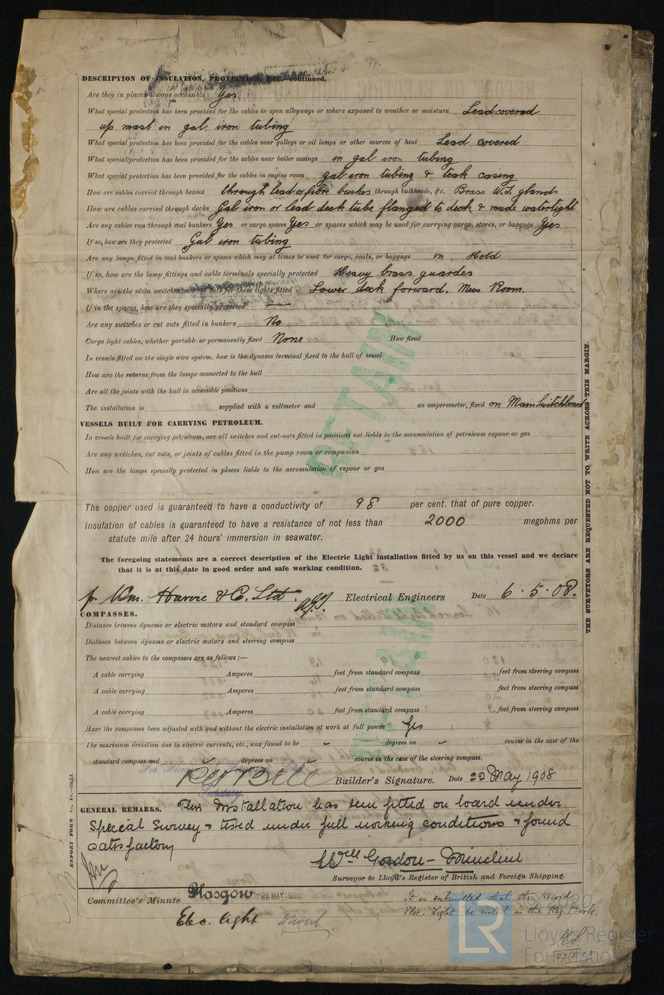 DESCRIPTION OF INSULATION, PROTECTION, ETC. continued.
Are they in places always accessible Yes
What special protection has been provided for the cables in open alleyways or where exposed to weather or moisture Lead covered
up mast in gal. iron tubing
What special protection has been provided for the cables near galleys or oil lamps or other sources of heat Lead covered
What special protection has been provided for the cables near boiler casings in gal iron tubing
What special protection has been provided for the cables in engine room gal iron tubing & teak casing
How are cables carried through beams through lead or fibre bushes through bulkheads, &c. Brass W.T. glands
How are cables carried through decks Gal iron or lead deck tube flanged to deck & made watertight
Are any cables run through coal bunkers Yes or cargo spaces Yes or spaces which may be used for carrying cargo, stores, or baggage Yes
If so, how are they protected Gal iron tubing
Are any lamps fitted in coal bunkers or spaces which may at times be used for cargo, coals, or baggage in Hold
If so, how are the lamp fittings and cable terminals specially protected Heavy brass guardes
Where are the main switches for these lights fitted Lower deck forward. Mess Room.
If in the spaces, how are they specially protected —
Are any switches or cut outs fitted in bunkers No
Cargo light cables, whether portable or permanently fixed None How fixed
In vessels fitted on the single wire system, how is the dynamo terminal fixed to the hull of vessel
How are the returns from the lamps connected to the hull
Are all the joints with the hull in accessible positions
The installation is supplied with a voltmeter and an amperemeter, fixed on Main Switchboard
VESSELS BUILT FOR CARRYING PETROLEUM.
In vessels built for carrying petroleum, are all switches and cut-outs fitted in positions not liable to the accumulation of petroleum vapour or gas
Are any switches, cut outs, or joints of cables fitted in the pump room or companion
How are the lamps specially protected in places liable to the accumulation of vapour or gas
RETAIN
The copper used is guaranteed to have a conductivity of 98 per cent. that of pure copper.
Insulation of cables is guaranteed to have a resistance of not less than 2000 megohms per
statute mile after 24 hours' immersion in seawater.
The foregoing statements are a correct description of the Electric Light installation fitted by us on this vessel and we declare
that it is at this date in good order and safe working condition.
p. Wm. Harvie & Co. Ltd. Electrical Engineers Date 6.5.08.
COMPASSES.
Distance between dynamo or electric motors and standard compass
Distance between dynamo or electric motors and steering compass
The nearest cables to the compasses are as follows:—
A cable carrying Amperes feet from standard compass feet from steering compass
A cable carrying Amperes feet from standard compass feet from steering compass
A cable carrying Amperes feet from standard compass feet from steering compass
Have the compasses been adjusted with and without the electric installation at work at full power Yes
The maximum deviation due to electric currents, etc., was found to be - degrees on - course in the case of the
standard compass and degrees on course in the case of the steering compass.
Builder's Signature. Date 22 May 1908
GENERAL REMARKS. This Installation has been fitted on board under
Special Survey & tried under full working conditions & found
satisfactory
Surveyor to Lloyd's Register of British and Foreign Shipping.
Committee's Minute Glasgow MAY
Elec. Light
It is submitted that the Record
Elec. Light be noted in the Reg. Book.
THE SURVEYORS ARE REQUESTED NOT TO WRITE ACROSS THIS MARGIN.
LR
Lloyd's Register
Foundation